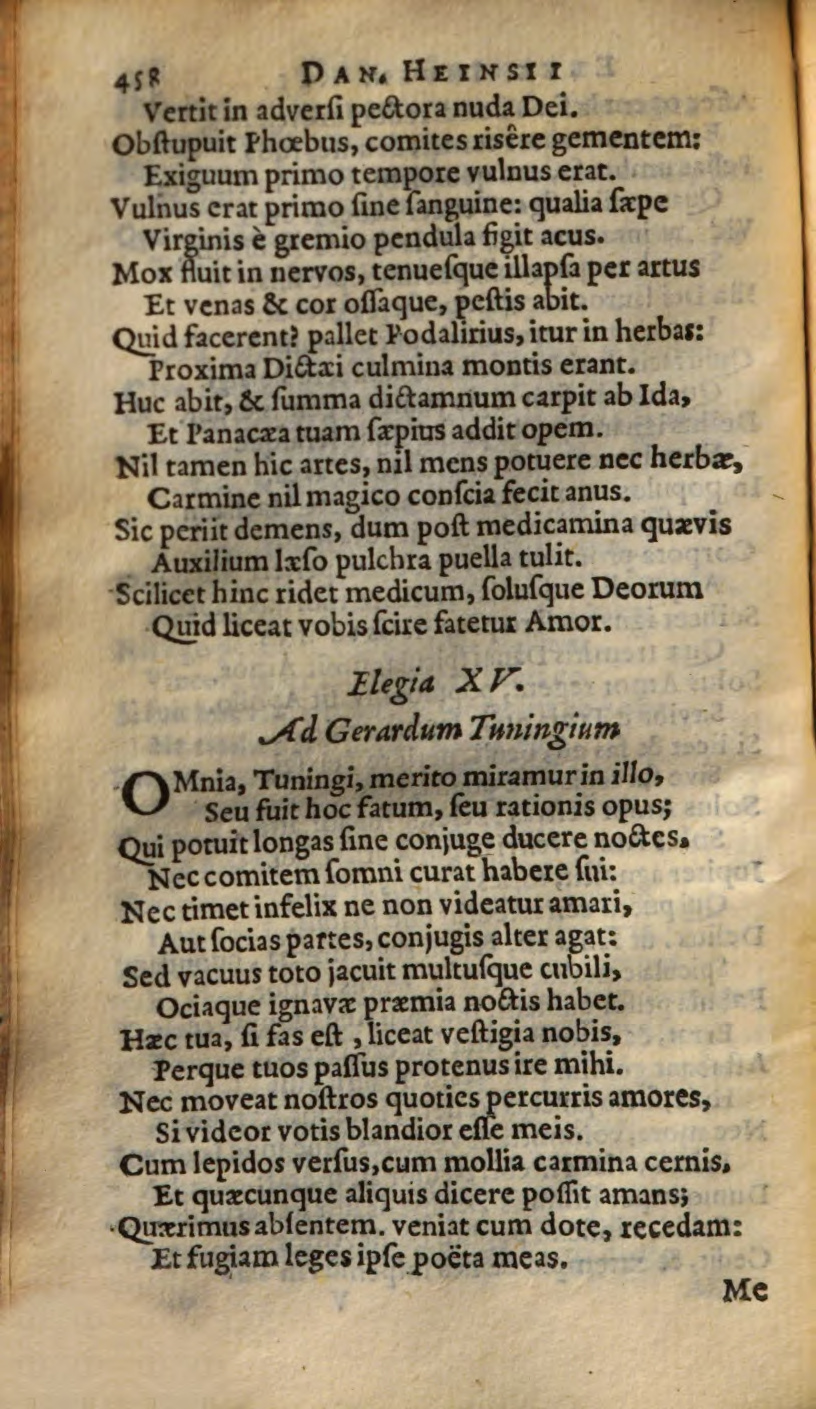 458 DAN. HEINSII
Vertit in adverſi pectora nuda Dei.
Obſtupuit Phœbus, comites risêre gementem:
Exiguum primo tempore vulnus erat.
Vulnus erat primo ſine ſanguine: qualia ſæpe
Virginis è gremio pendula figit acus.
Mox fluit in nervos, tenueſque illapſa per artus
Et venas & cor oſſaque, peſtis abit.
Quid facerent? pallet Podalirius, itur in herbas:
Proxima Dictæi culmina montis erant.
Huc abit, & ſumma dictamnum carpit ab Ida,
Et Panacæa tuam ſæpius addit opem.
Nil tamen hic artes, nil mens potuere nec herbæ,
Carmine nil magico conſcia fecit anus.
Sic periit demens, dum poſt medicamina quævis
Auxilium læſo pulchra puella tulit.
Scilicet hinc ridet medicum, ſoluſque Deorum
Quid liceat vobis ſcire fatetur Amor.
Elegia XV.
Ad Gerardum Tuningium
OMnia, Tuningi, merito miramur in illo,
Seu fuit hoc fatum, ſeu rationis opus;
Qui potuit longas ſine conjuge ducere noctes,
Nec comitem ſomni curat habere ſui:
Nec timet infelix ne non videatur amari,
Aut ſocias partes, conjugis alter agat:
Sed vacuus toto jacuit multuſque cubili,
Ociaque ignavæ præmia noctis habet.
Hæc tua, ſi fas eſt , liceat veſtigia nobis,
Perque tuos paſſus protenus ire mihi.
Nec moveat noſtros quoties percurris amores,
Si videor votis blandior eſſe meis.
Cum lepidos verſus, cum mollia carmina cernis,
Et quæcunque aliquis dicere poſſit amans;
Quærimus abſentem. veniat cum dote, recedam:
Et fugiam leges ipſe poëta meas.
Me